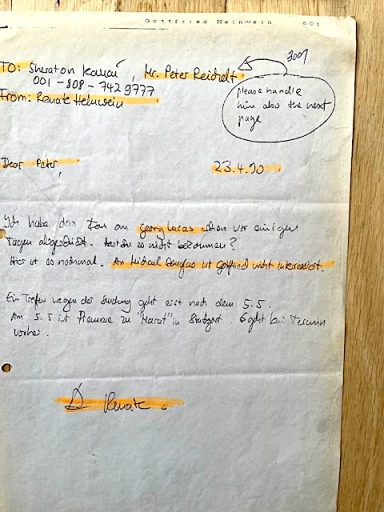 Gottfried Helnwein 001
3001
TO: Sheraton Kauai, Mr. Peter Reichelt
001-808-742 9777
From: Renate Helnwein
please handle
him also the next
page
Dear Peter,
23.4.90
Ich habe den Fax an georg lucas schon vor einigen
Tagen abgeschickt. hast du es nicht bekommen?
Hier ist es nochmal. An Michael Douglas ist gottfried nicht interessiert.
Ein Treffen wegen der Sendung geht erst nach dem 5.5.
Am 5.5 ist Premiere zu "Marat" in Stuttgart geht kein Termin
vorher.
Renate